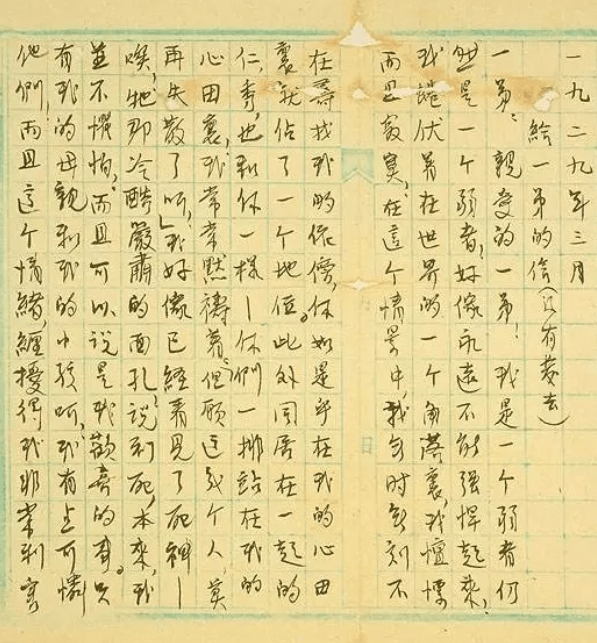 一九二九年三月
給一弟的信(沒有發去)
一弟，親愛的一弟！我是一个弱者何
然是一个弱者，好像永遠不能強悍起來，
我蜷伏着在世界的一个角落裏，我惶悸
而且寂寞，在這个情景中，我無时無刻不
在尋找我的依傍，你如是乎在我的心田
裏就佔了一个地位。此外同居在一起的
仁，秀，也和你一樣—你們一排站在我的
心田裏，我常常默禱着，但願這幾个人，莫
再失散了吓，我好像已經看見了死神—
唉，牠那冷酷嚴肅的面孔，說到死，本來，我
並不懼怕，而且可以說是我歡喜的事。只
有我的母親和我的小孩呵，我有可憐
他們，而且這个情緒，纏擾得我非常利害